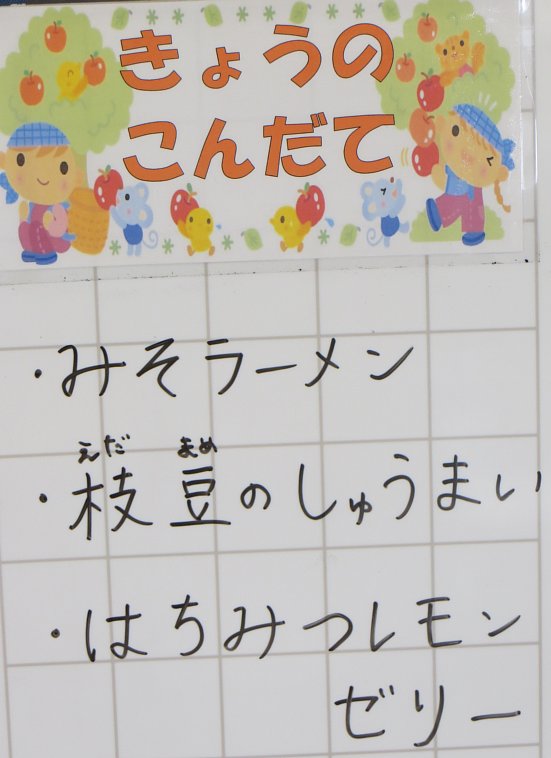 きょうの
こんだて
・みそラーメン
えだ まめ
・枝豆のしゅうまい
・はちみつレモン
ゼリー